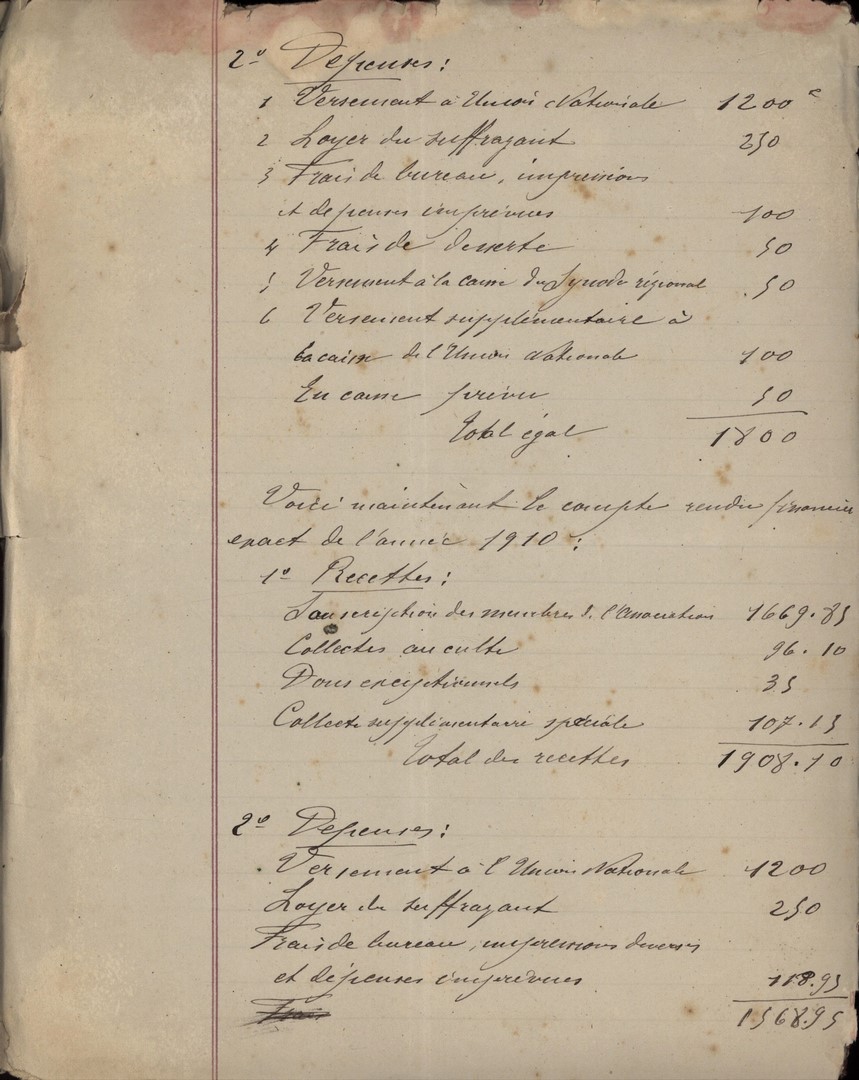 2º Dépenses:
1 Versement à Union Nationale 1200 c
2 Loyer du suffragant 250
3 Frais de bureau, impressions
et dépenses imprévues 100
4 Frais de desserte 50
5 Versement à la caisse du Synode régional 50
6 Versement supplémentaire à
la caisse de l'Union Nationale 100
En caisse prévu 50
Total égal 1800
Voici maintenant le compte rendu financier
exact de l'année 1910:
1º Recettes:
Souscription des membres de l'Association 1669.85
Collectes au culte 96.10
Dons exceptionnels 35
Collecte supplémentaire spéciale 107.15
Total des recettes 1908.10
2º Dépenses:
Versement à l'Union Nationale 1200
Loyer du suffragant 250
Frais de bureau, impressions diverses
et dépenses imprévues 118.95
Frais 1568.95